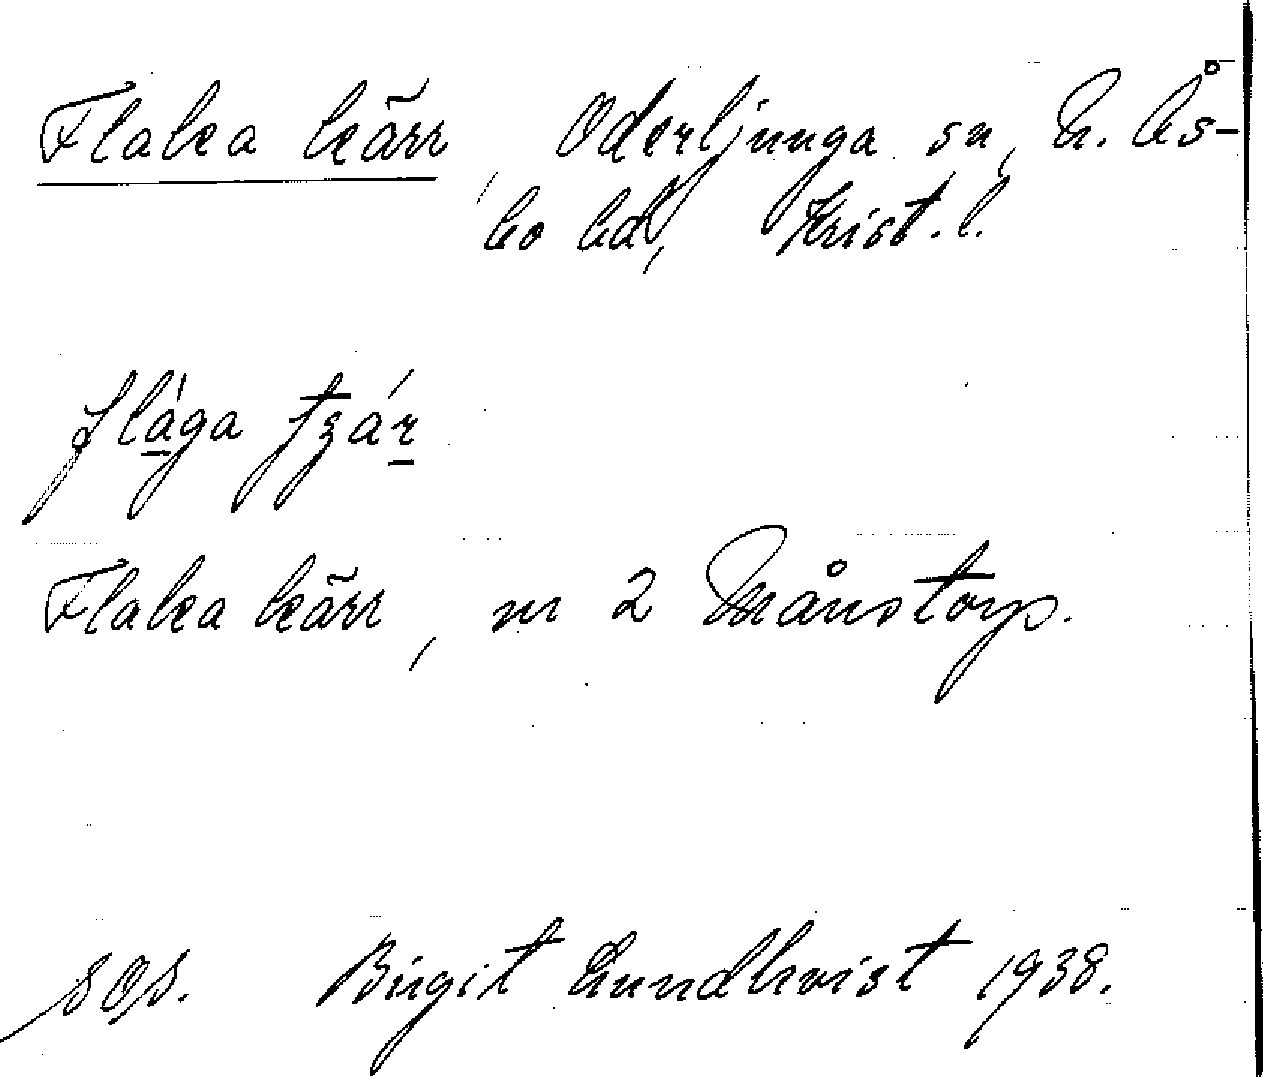 Flaka kärr, Oderljunga sn, N. Ås-
bo hd, Krist. l.
flága tʒár
Flaka kärr, m 2 Månstorp.
SOS. Birgit Lundkvist 1938.